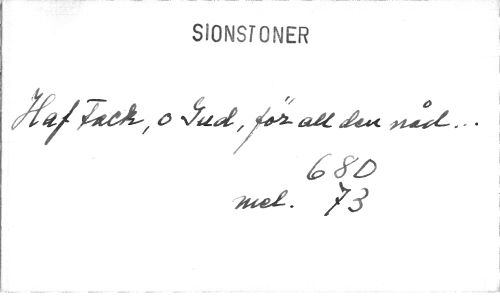 SIONSTONER
Haf Tack, o Gud, för all den nåd...
680
mel. 73